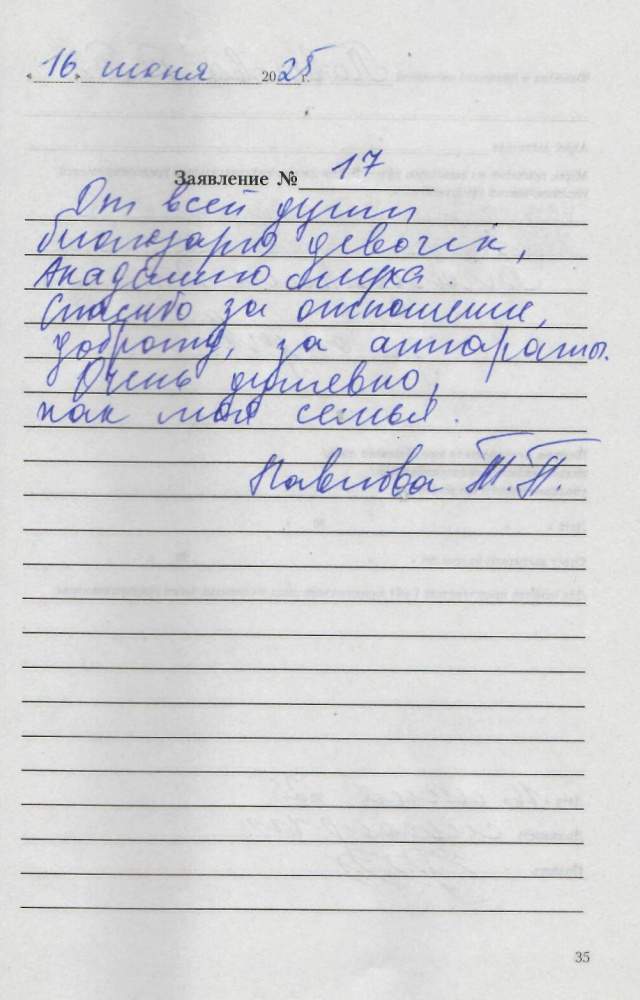 «16» июня 2025 г.
Заявление № 17
От всей души
благодарю девочек,
Академию слуха.
Спасибо за отношение,
доброту, за аппараты.
Очень душевно,
как моя семья.
Павлова Т.П.
35